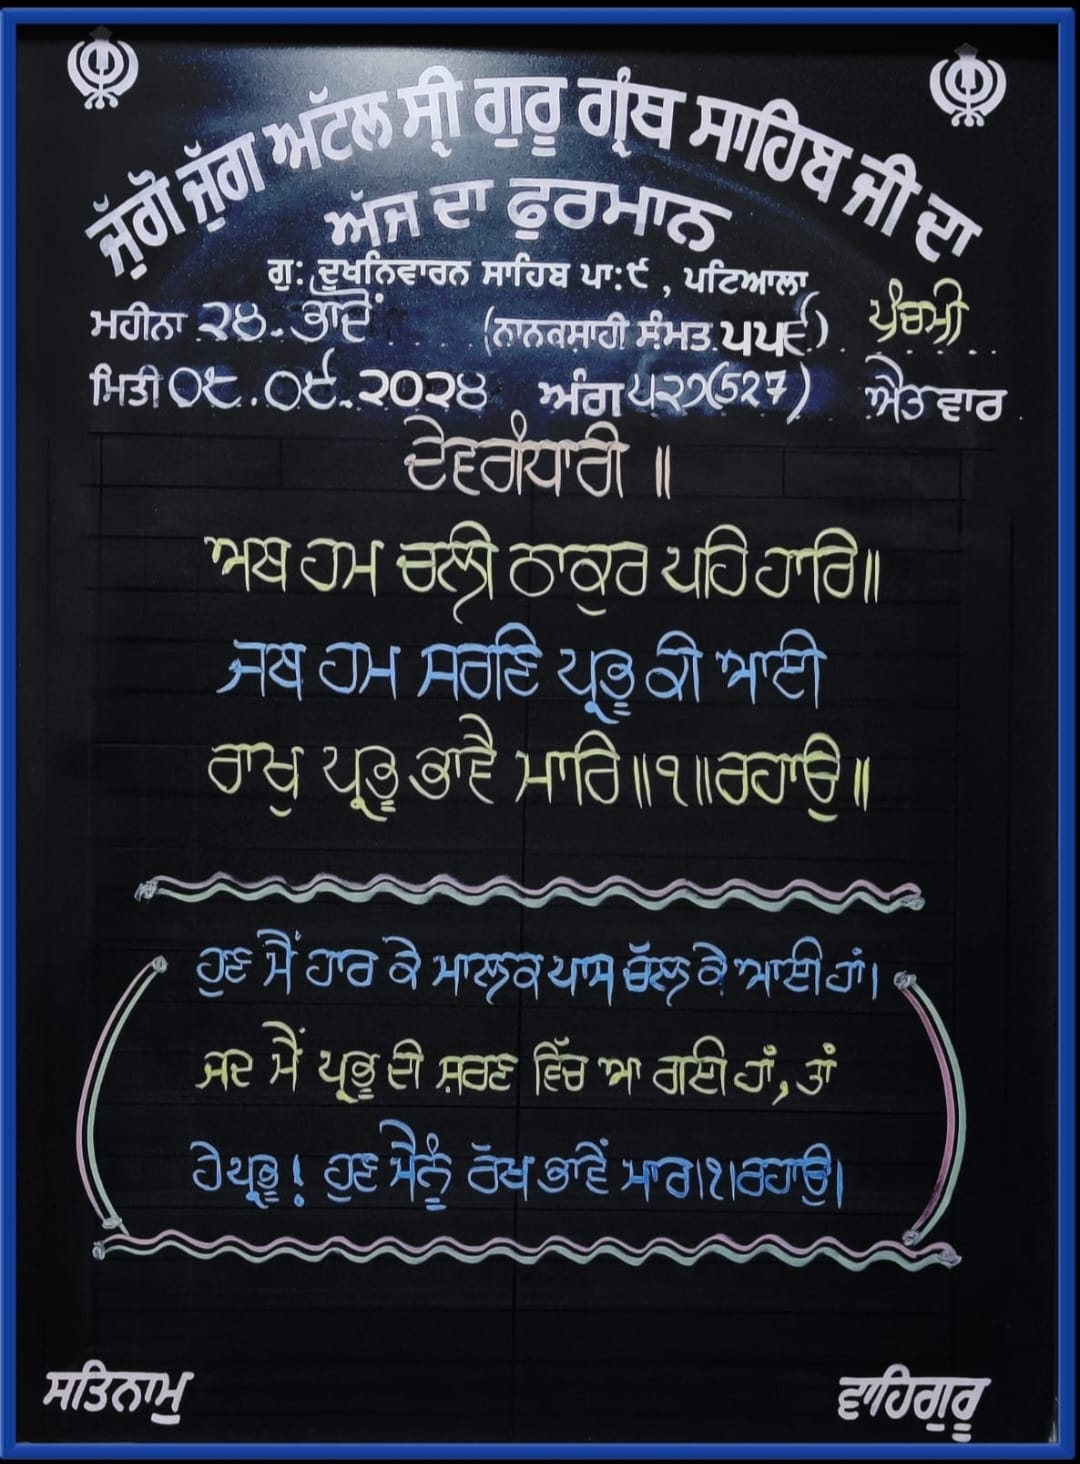 ਜੁੱਗੋ ਜੁੱਗ ਅਟੱਲ ਸ੍ਰੀ ਗੁਰੂ ਗ੍ਰੰਥ ਸਾਹਿਬ ਜੀ ਦਾ
ਅੱਜ ਦਾ ਫੁਰਮਾਨ
ਗੁ: ਦੂਖਨਿਵਾਰਨ ਸਾਹਿਬ ਪਾ:੯ , ਪਟਿਆਲਾ
ਮਹੀਨਾ ੨੪. ਭਾਦੋਂ (ਨਾਨਕਸ਼ਾਹੀ ਸੰਮਤ ੫੫੬) ਪੰਚਮੀ
ਮਿਤੀ ੦੮.੦੯.੨੦੨੪ ਅੰਗ ੫੨੭(527) ਐਤਵਾਰ
ਦੇਵਗੰਧਾਰੀ ॥
ਅਬ ਹਮ ਚਲੀ ਠਾਕੁਰ ਪਹਿ ਹਾਰਿ॥
ਜਬ ਹਮ ਸਰਣਿ ਪ੍ਰਭੂ ਕੀ ਆਈ
ਰਾਖੁ ਪ੍ਰਭੂ ਭਾਵੈ ਮਾਰਿ॥੧॥ਰਹਾਉ॥
ਹੁਣ ਮੈਂ ਹਾਰ ਕੇ ਮਾਲਕ ਪਾਸ ਚੱਲ ਕੇ ਆਈ ਹਾਂ।
ਜਦ ਮੈਂ ਪ੍ਰਭੂ ਦੀ ਸ਼ਰਣ ਵਿੱਚ ਆ ਗਈ ਹਾਂ, ਤਾਂ
ਹੇ ਪ੍ਰਭੂ! ਹੁਣ ਮੈਨੂੰ ਰੱਖ ਭਾਵੇਂ ਮਾਰ।੧।ਰਹਾਉ।
ਸਤਿਨਾਮੁ ਵਾਹਿਗੁਰੂ